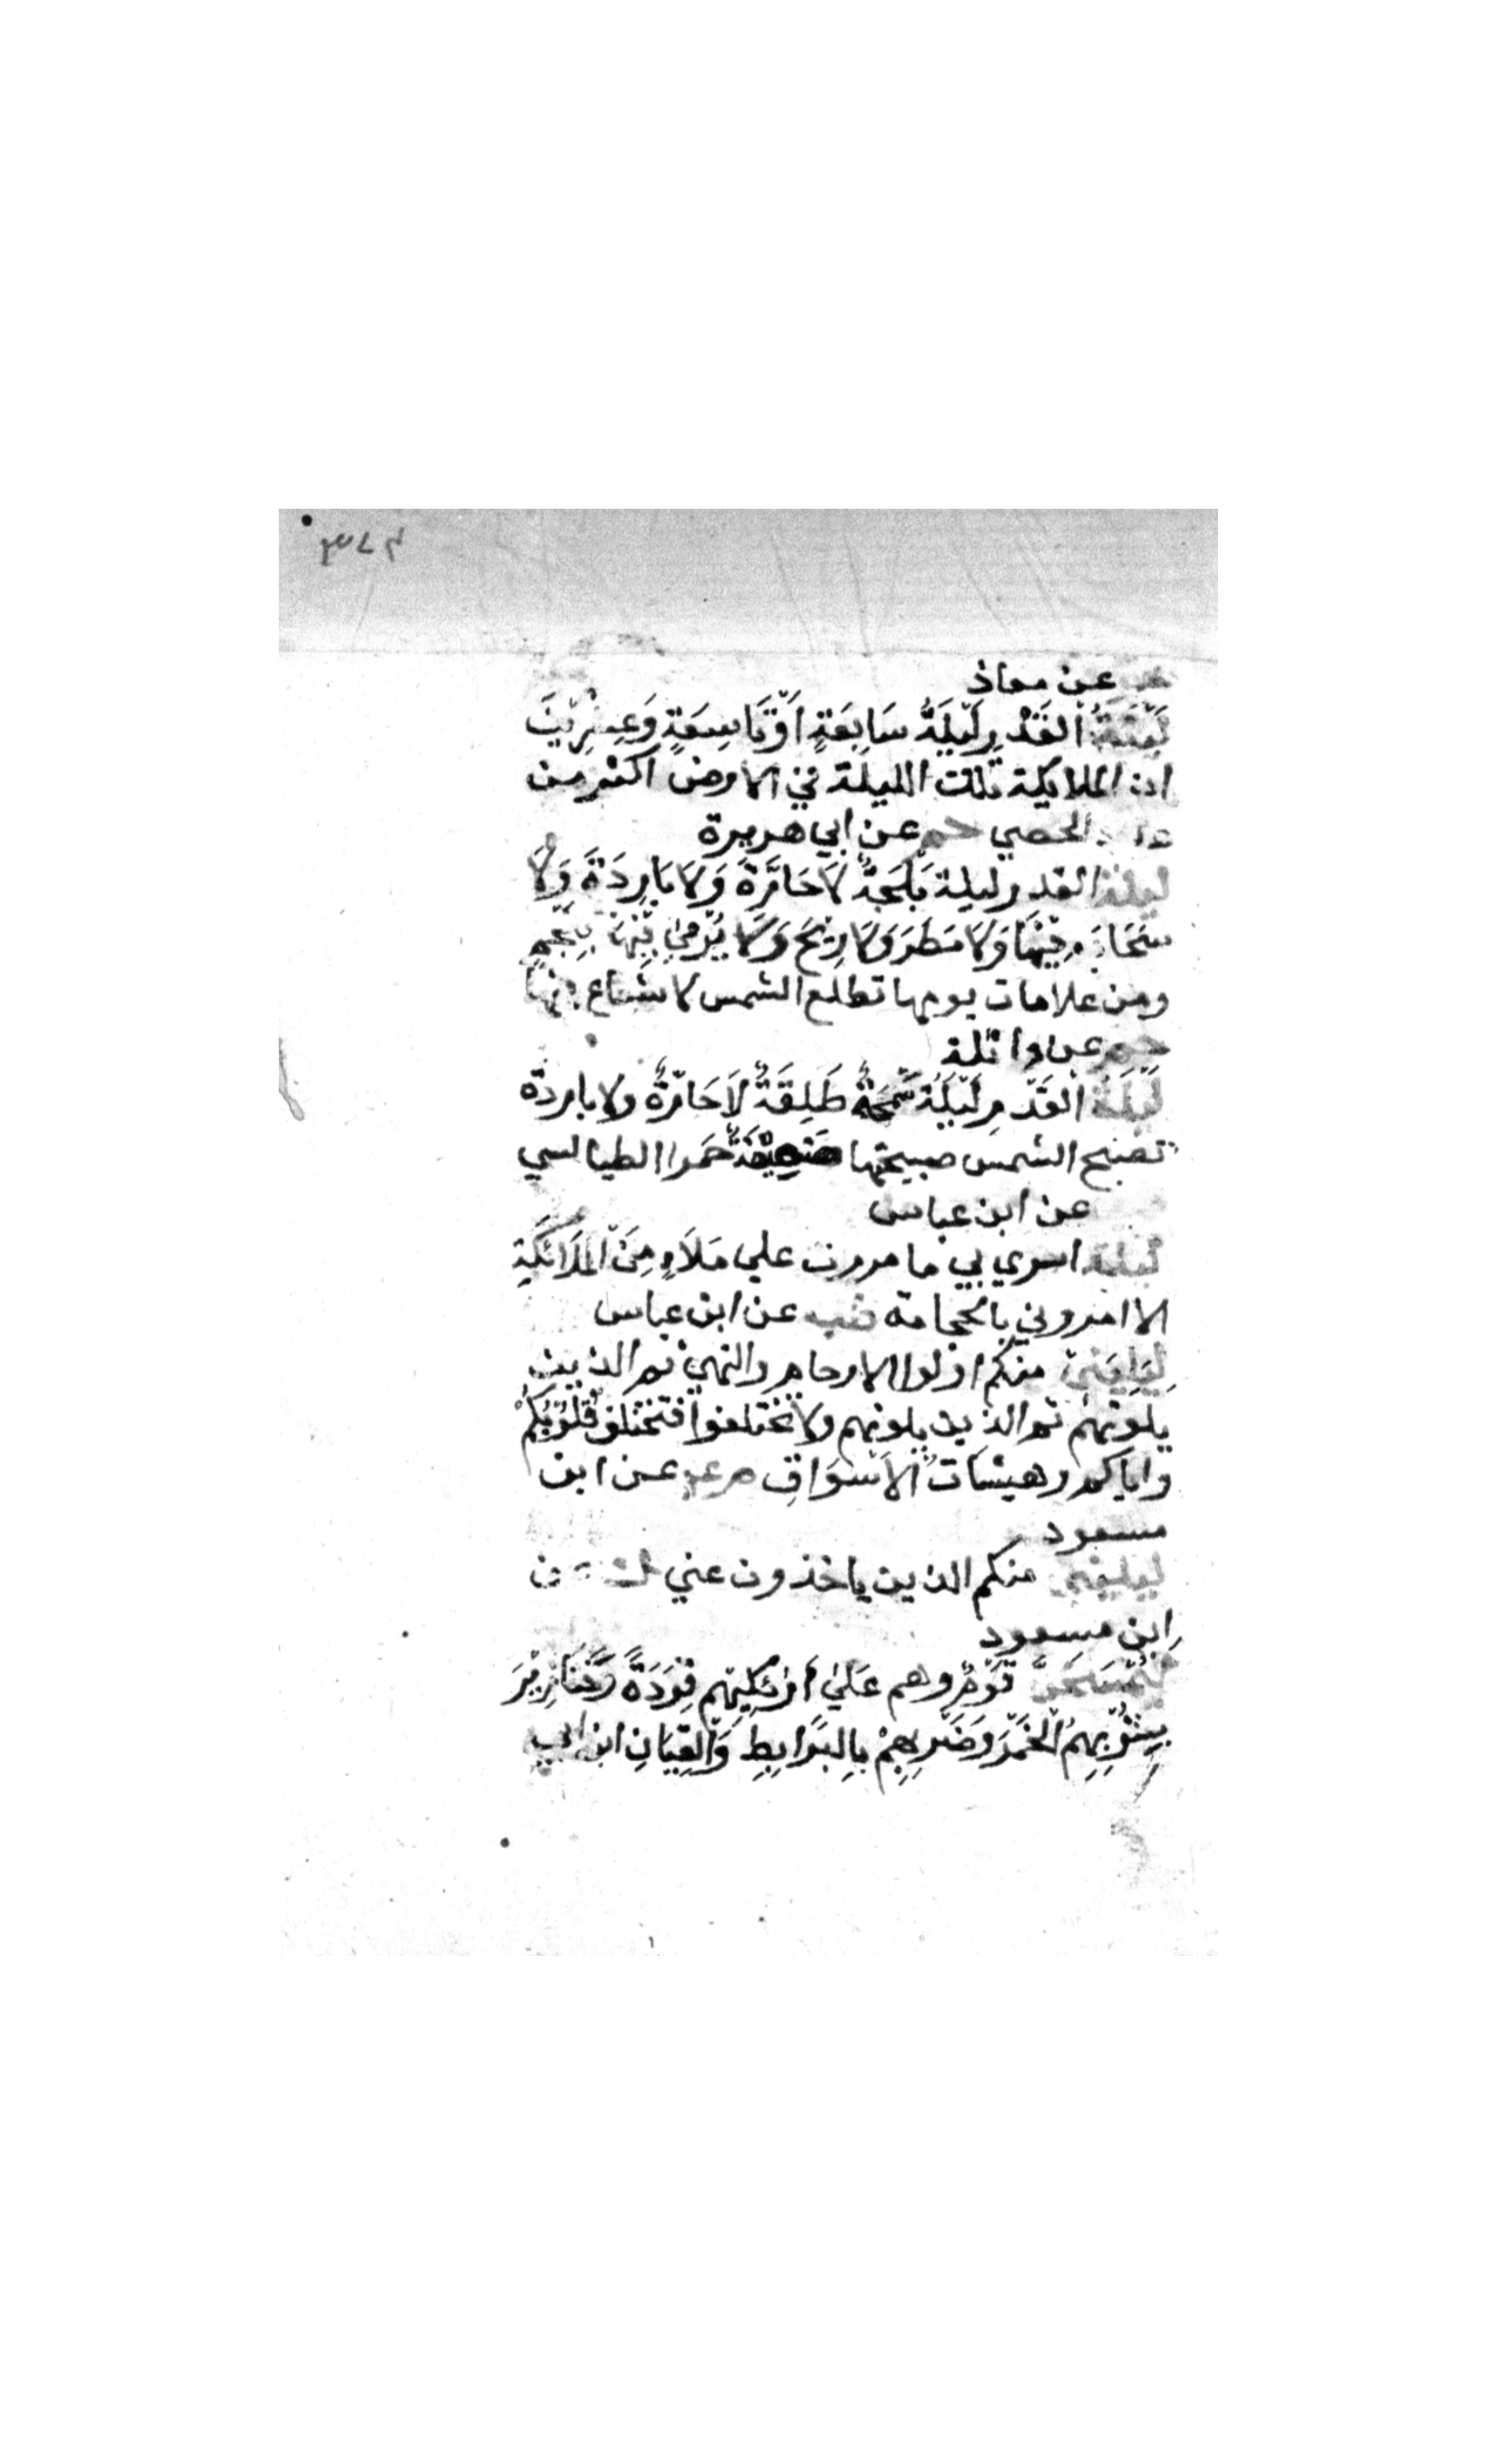 ٣٧٤
حم عن معاذ
لَيْلَةُ الْقَدْرِ لَيْلَةُ سَابِعَةٍ اَوْ تَاسِعَةٍ وَعِشْرِيْنَ
ان الملايكة تلك الليلة في الارض اكثر من
عدد الحصي حم عن ابي هريرة
ليلة القدر ليلة بَلْجَةٌ لَا حَارَّةَ وَلَا بَارِدَةَ وَلَا
سَحَابَ فِيْهَا وَلَا مَطَرَ وَلَا رِيْحَ وَلَا يُرْمٰي فِيْهَا بِنَجْمٍ
ومن علامات يومها تطلع الشمس لا شعاع لها
عن واثلة
لَيْلَةُ الْقَدْرِ لَيْلَةٌ سَمْحَةٌ طَلِقَةٌ لَا حَارَّةٌ ولا باردة
تصبح الشمس صبيحتها ضَعِيْفَةٌ حَمرا الطيالسي
عن ابن عباس
ليلة اسري بي ما مررت علي مَلَاءٍ مِنَ الْمَلَائكَةِ
الا امروني بالحجامة طب عن ابن عباس
لِيَلِيَنِي منكم اولوا الارحام والنهي ثم الذين
يلونهم ثم الذين يلونهم ولا تختلفوا فتختلف قُلُوْبُكُمْ
واياكم وهيشَات الْاَسْوَاقِ م عن ابن
مسعود
ليليني منكم الذين ياخذون عني ك عن
ابن مسعود
لَيُمْسَخَنَّ قَوْمٌ وهم عَلَيٰ اَرِيْكَتِهِم قِرَدَةً وَّخَنَازِيْرَ
بِشُرْبِهِمُ الْخَمْرَ وَضَرْبِهِمْ بِالْبَرَابِطِ وَالْقِيَانِ ابن ابي